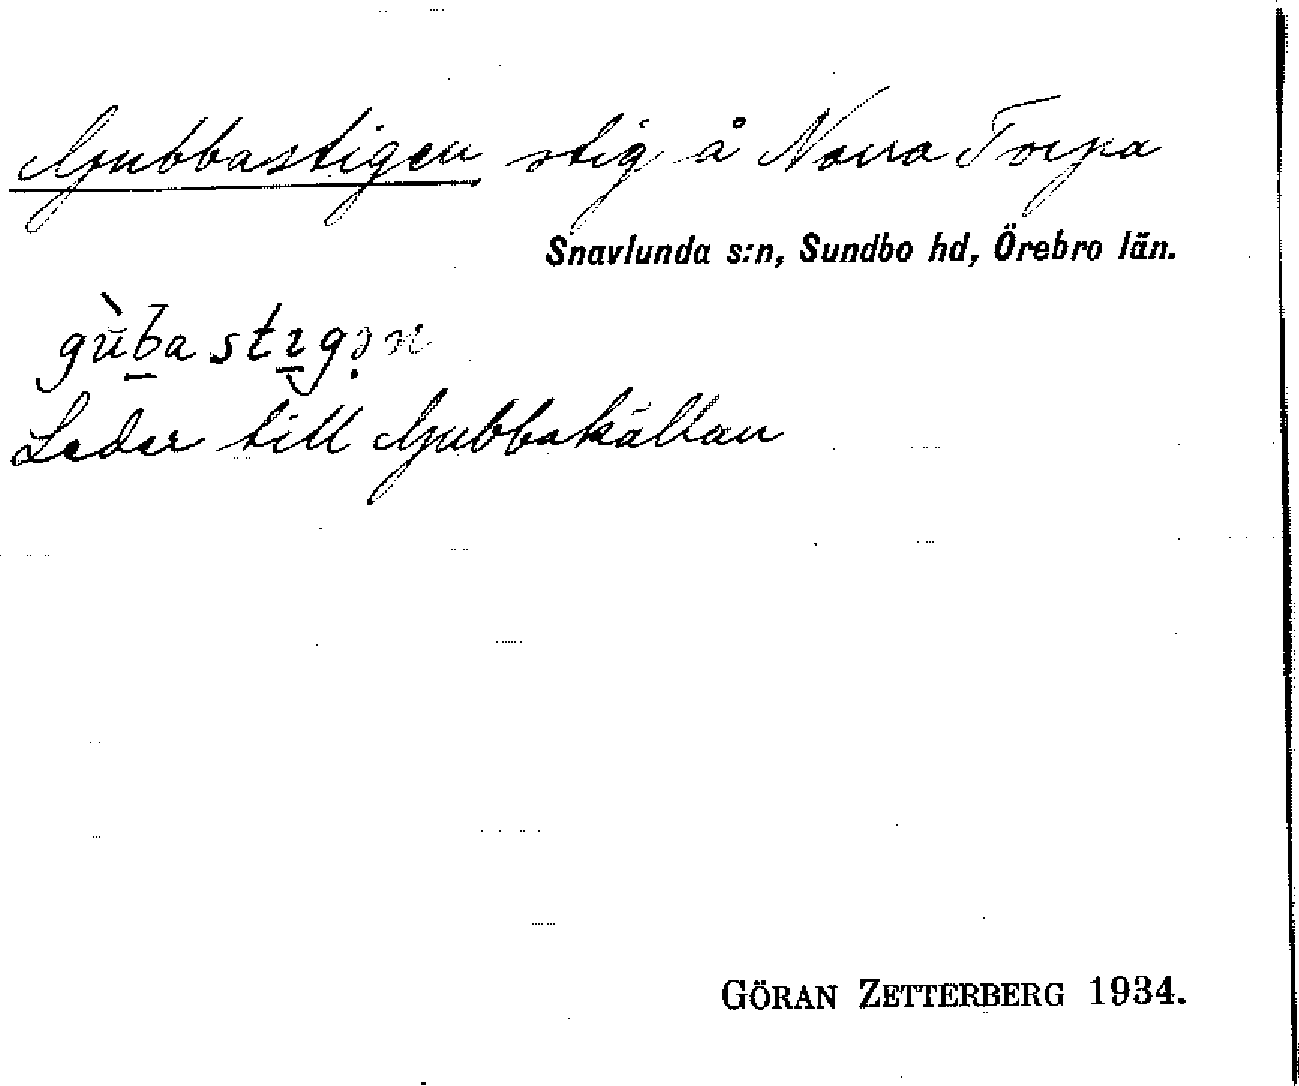 Gubbastigen stig å Norra Torpa
Snavlunda s:n, Sundbo hd, Örebro län.
gùba stɪgən
Leder till Gubbakällan
GÖRAN ZETTERBERG 1934.